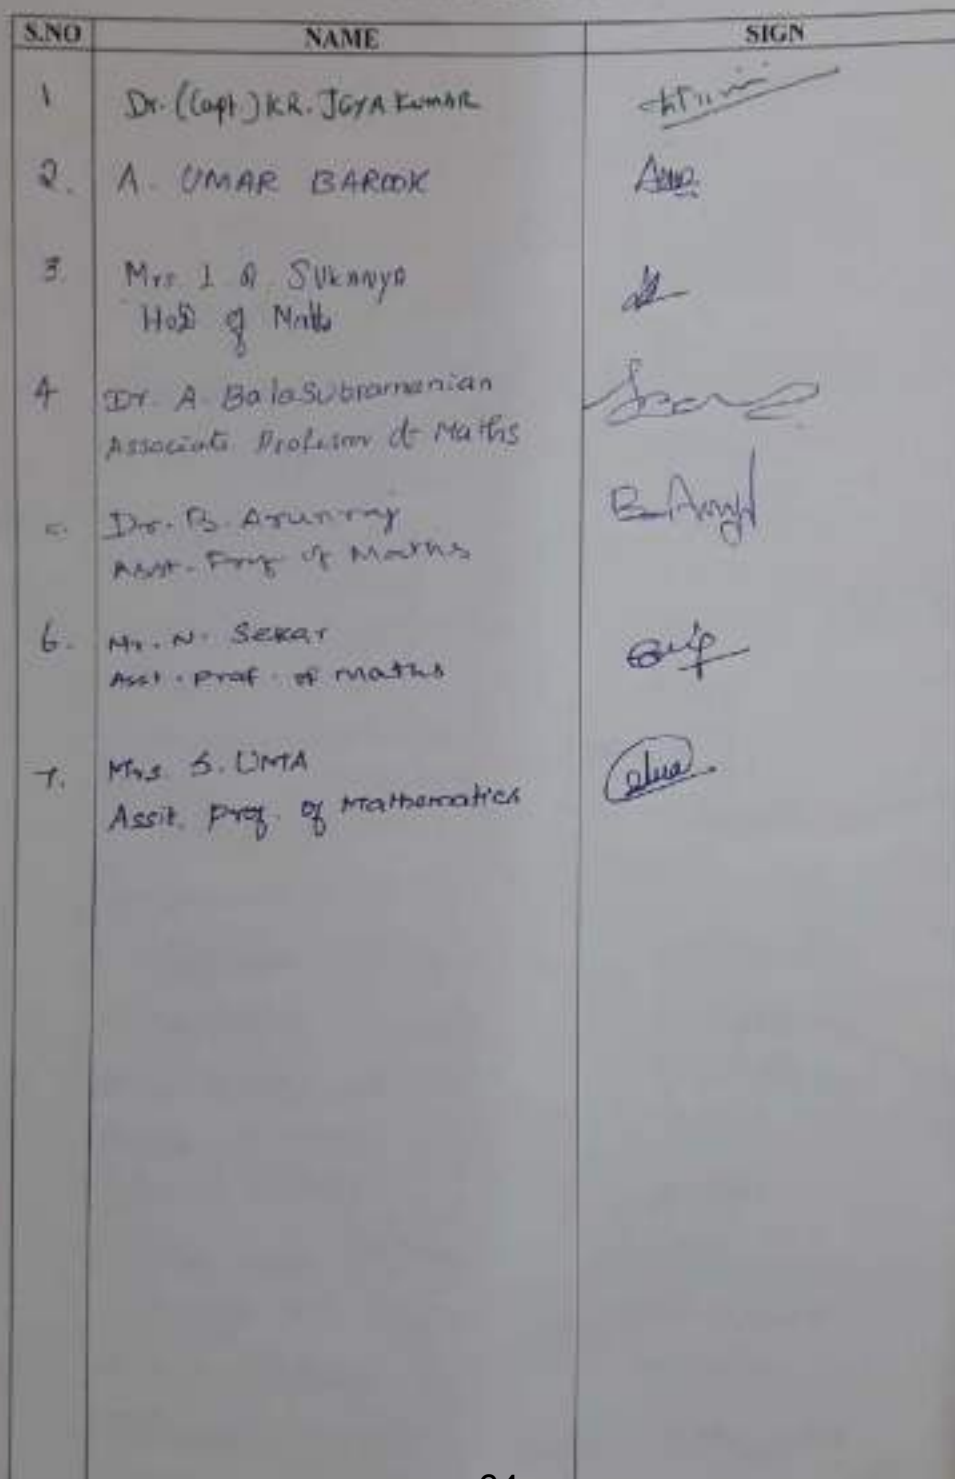 S.NO NAME SIGN
1 Dr. (Capt.) K.R. JEYAKUMAR
2. A. UMAR BAROOK
3. Mrs I SUKANYA
HoD of Maths
4 Dr. A. BalaSubramanian
Associate Professor of Maths
Dr. B. Arunraj B. Arunj
Asst. Prof of Maths
6. Mr. N. Sekar
Asst. Prof. of maths
7. Mrs. S. UMA
Assit. prof. of Mathematics